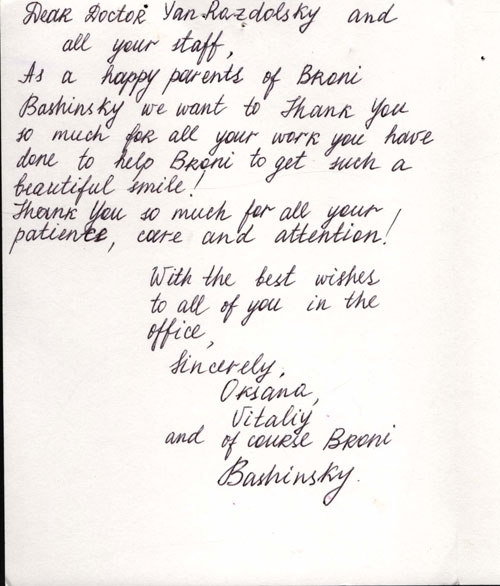 Dear Doctor Yan Razdolsky and
all your staff,
As a happy parents of Broni
Bashinsky we want to Thank You
so much for all your work you have
done to help Broni to get such a
beautiful smile!
Thank You so much for all your
patience, care and attention!
With the best wishes
to all of you in the
office,
Sincerely,
Oksana,
Vitaliy
and of course Broni
Bashinsky.